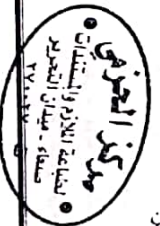 مركز الحزمي
لطباعة الملازم والمستندات
صنعاء - ميدان التحرير